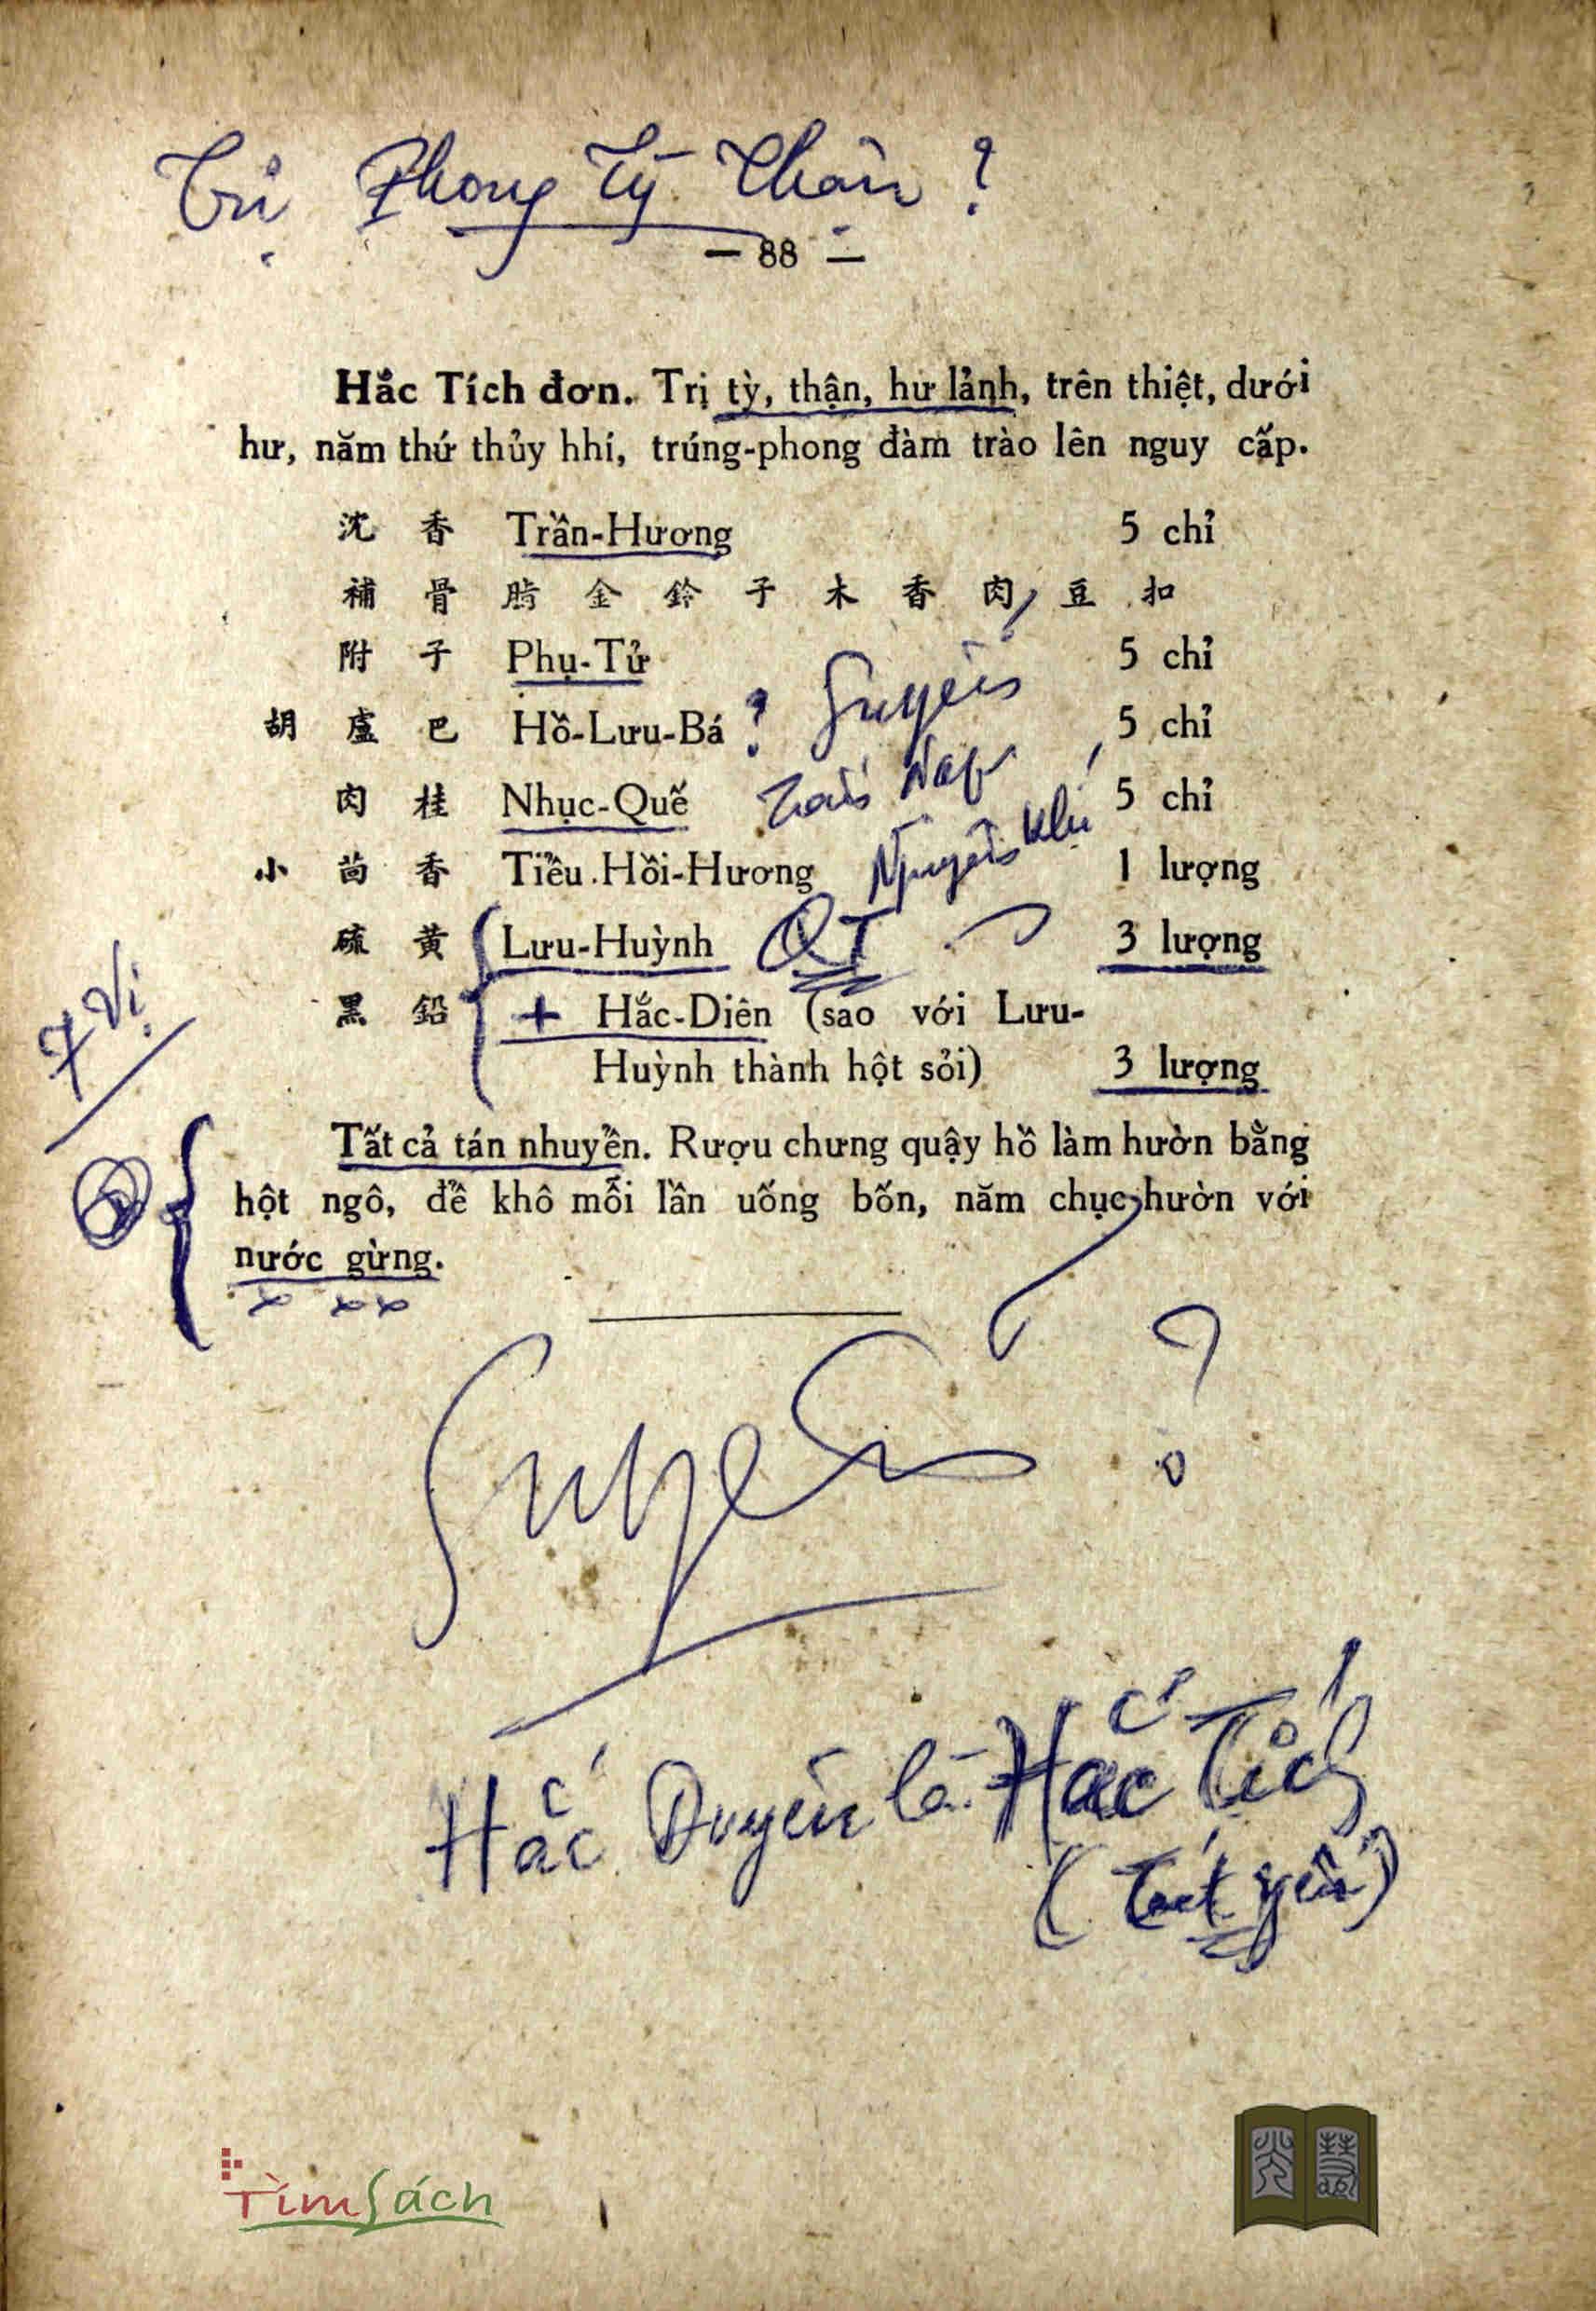 Trị Phong Tỳ Thận ?
— 88 —
Hắc Tích đơn. Trị tỳ, thận, hư lảnh, trên thiệt, dưới
hư, năm thứ thủy hhí, trúng-phong đàm trào lên nguy cấp.
沈 香 Trần-Hương 5 chỉ
補 骨 脂 金 鈴 子 木 香 肉 豆 扣
附 子 Phụ-Tử 5 chỉ
Suyễn
胡 盧 巴 Hồ-Lưu-Bá ? 5 chỉ
肉 桂 Nhục-Quế 5 chỉ
Nguyên khí
小 茴 香 Tiểu.Hồi-Hương 1 lượng
硫 黄 Lưu-Huỳnh QT 3 lượng
7 Vị
黑 鉛 + Hắc-Diên (sao với Lưu-
Huỳnh thành hột sỏi) 3 lượng
Tất cả tán nhuyễn. Rượu chưng quậy hồ làm hườn bằng
hột ngô, để khô mỗi lần uống bốn, năm chục hườn với
nước gừng.
Suyễn ?
Hắc Duyên là Hắc Tích
TìmSách